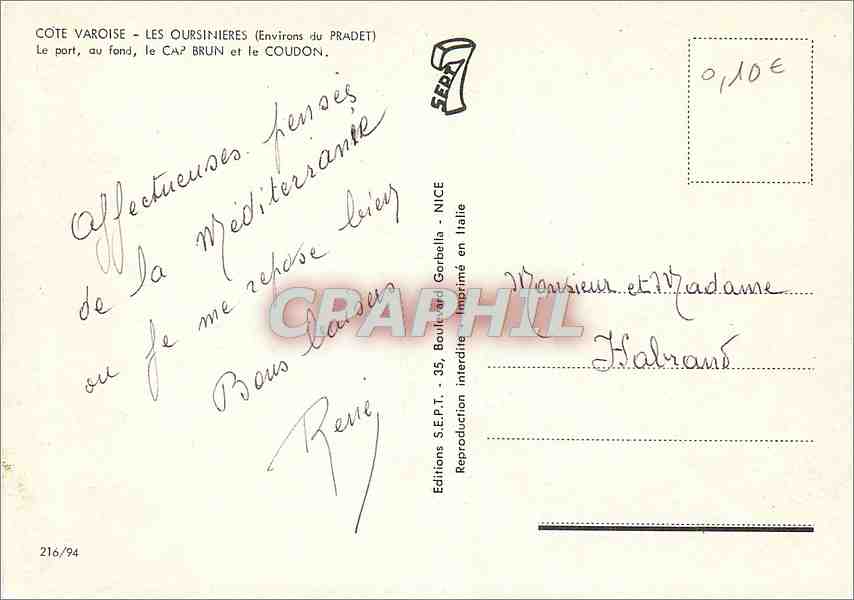 COTE VAROISE - LES OURSINIERES (Environs du PRADET)
Le port, au fond, le CAP BRUN et le COUDON.
SEPT
0,10€
Affectueuses pensées
de la Méditerranée
ou je me repose bien
Bons baisers
René
CPAPHIL
Editions S.E.P.T. - 35, Boulevard Gorbella - NICE
Reproduction interdite - Imprimé en Italie
Monsieur et Madame
216/94